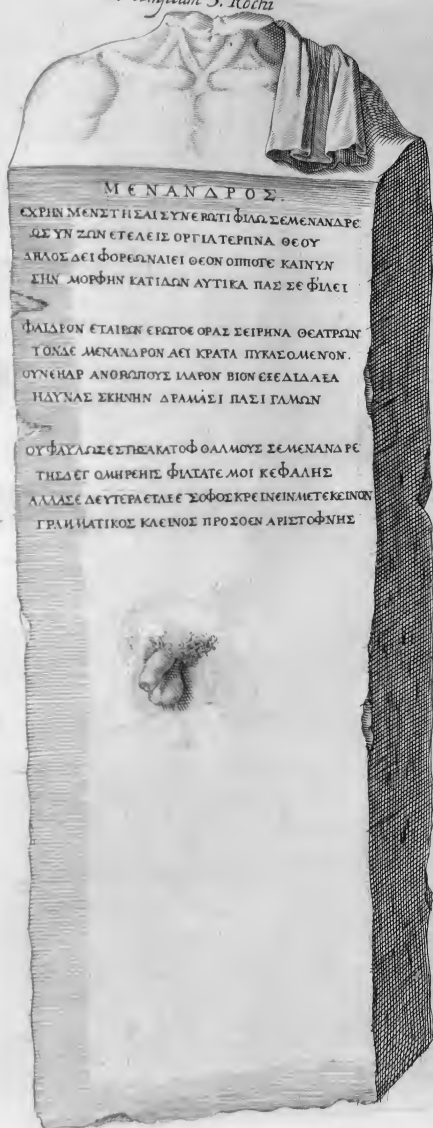 S. Rochi
ΜΕΝΑΝΔΡΟΣ.
ΕΧΡΗΝ ΜΕΝ ΣΤΗΣΑΙ ΣΥΝ ΕΡΩΤΙ ΦΙΛΩ ΣΕ ΜΕΝΑΝΔΡΕ
ΩΣ ΥΝ ΖΩΝ ΕΤΕΛΕΙΣ ΟΡΓΙΑ ΤΕΡΠΝΑ ΘΕΟΥ
ΔΗΛΟΣ ΔΕΙ ΦΟΡΕΩΝ ΑΙΕΙ ΘΕΟΝ ΟΠΠΟΤΕ ΚΑΙ ΝΥΝ
ΣΗΝ ΜΟΡΦΗΝ ΚΑΤΙΔΩΝ ΑΥΤΙΚΑ ΠΑΣ ΣΕ ΦΙΛΕΙ
ΦΑΙΔΡΟΝ ΕΤΑΙΡΟΝ ΕΡΩΤΟΣ ΟΡΑΣ ΣΕΙΡΗΝΑ ΘΕΑΤΡΩΝ
ΤΟΝΔΕ ΜΕΝΑΝΔΡΟΝ ΑΕΙ ΚΡΑΤΑ ΠΥΚΑΣΟΜΕΝΟΝ.
ΟΥΝΕΗΑΡ ΑΝΘΡΩΠΟΥΣ ΙΛΑΡΟΝ ΒΙΟΝ ΕΞΕΔΙΔΑΞΑ
ΗΔΥΝΑΣ ΣΚΗΝΗΝ ΔΡΑΜΑΣΙ ΠΑΣΙ ΓΑΜΩΝ
ΟΥ ΦΑΥΛΩΣ ΕΣΤΗΣΑ ΚΑΤ ΟΦΘΑΛΜΟΥΣ ΣΕ ΜΕΝΑΝΔΡΕ
ΤΗΣΔΕ Γ ΟΜΗΡΕΗΙΣ ΦΙΛΤΑΤΕ ΜΟΙ ΚΕΦΑΛΗΣ
ΑΛΛΑ ΣΕ ΔΕΥΤΕΡΑ ΕΤΑΞΕ ΣΟΦΟΣ ΚΡΕΙΝΕΙΝ ΜΕΤ ΕΚΕΙΝΟΝ
ΓΡΑΜΜΑΤΙΚΟΣ ΚΛΕΙΝΟΣ ΠΡΟΣΘΕΝ ΑΡΙΣΤΟΦΝΗΣ